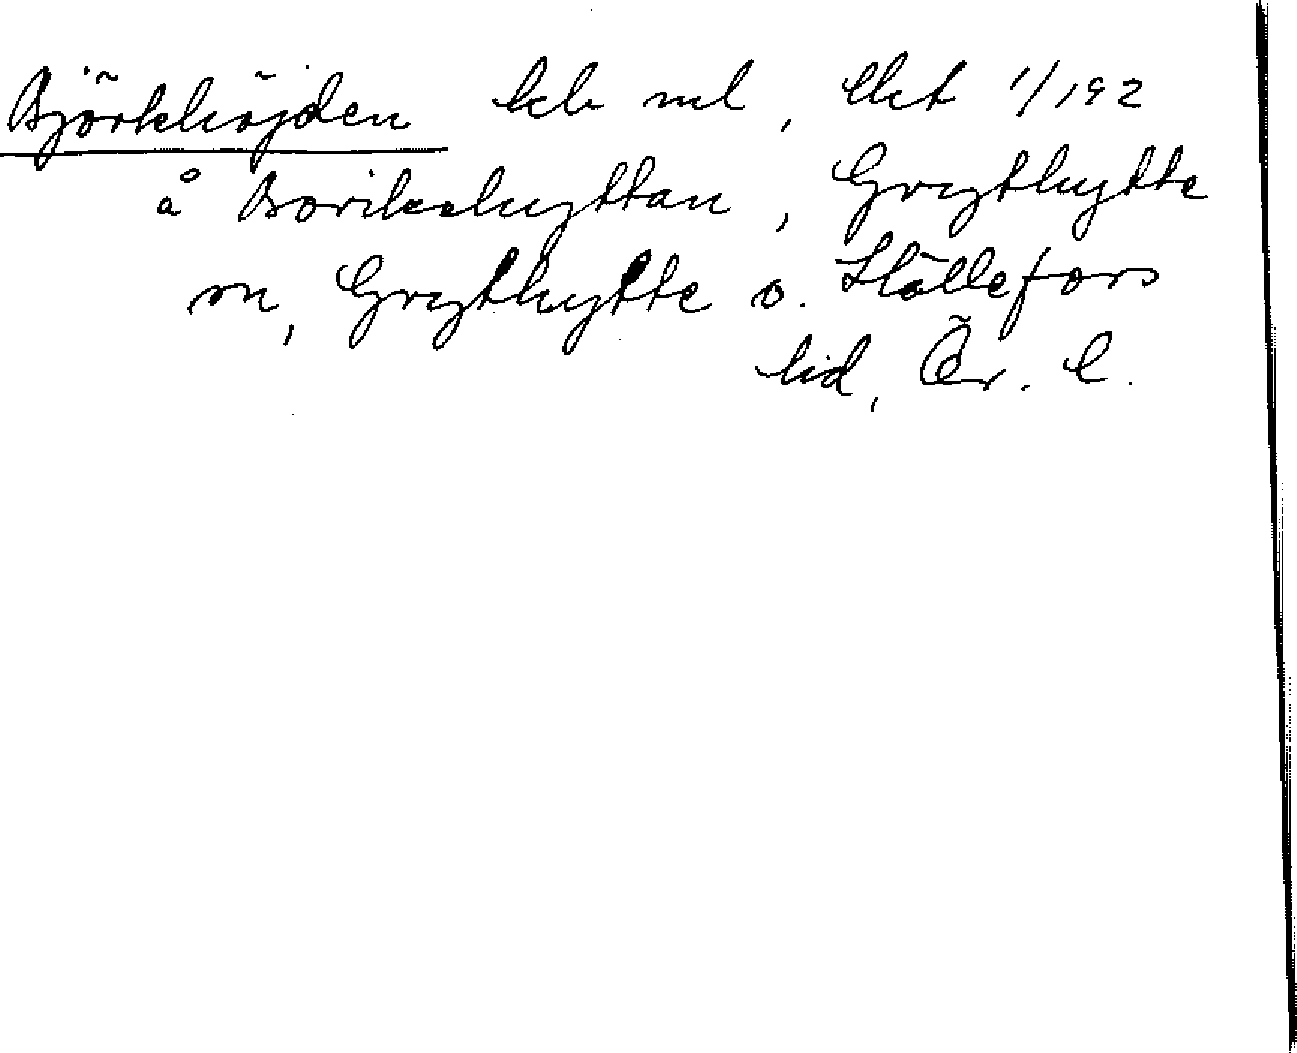 Björkhöjden lch nul, Ekt 1/192
å Borikshyttan, Grythytte
sn, Grythytte o. Hällefors
tid, Ör. l.